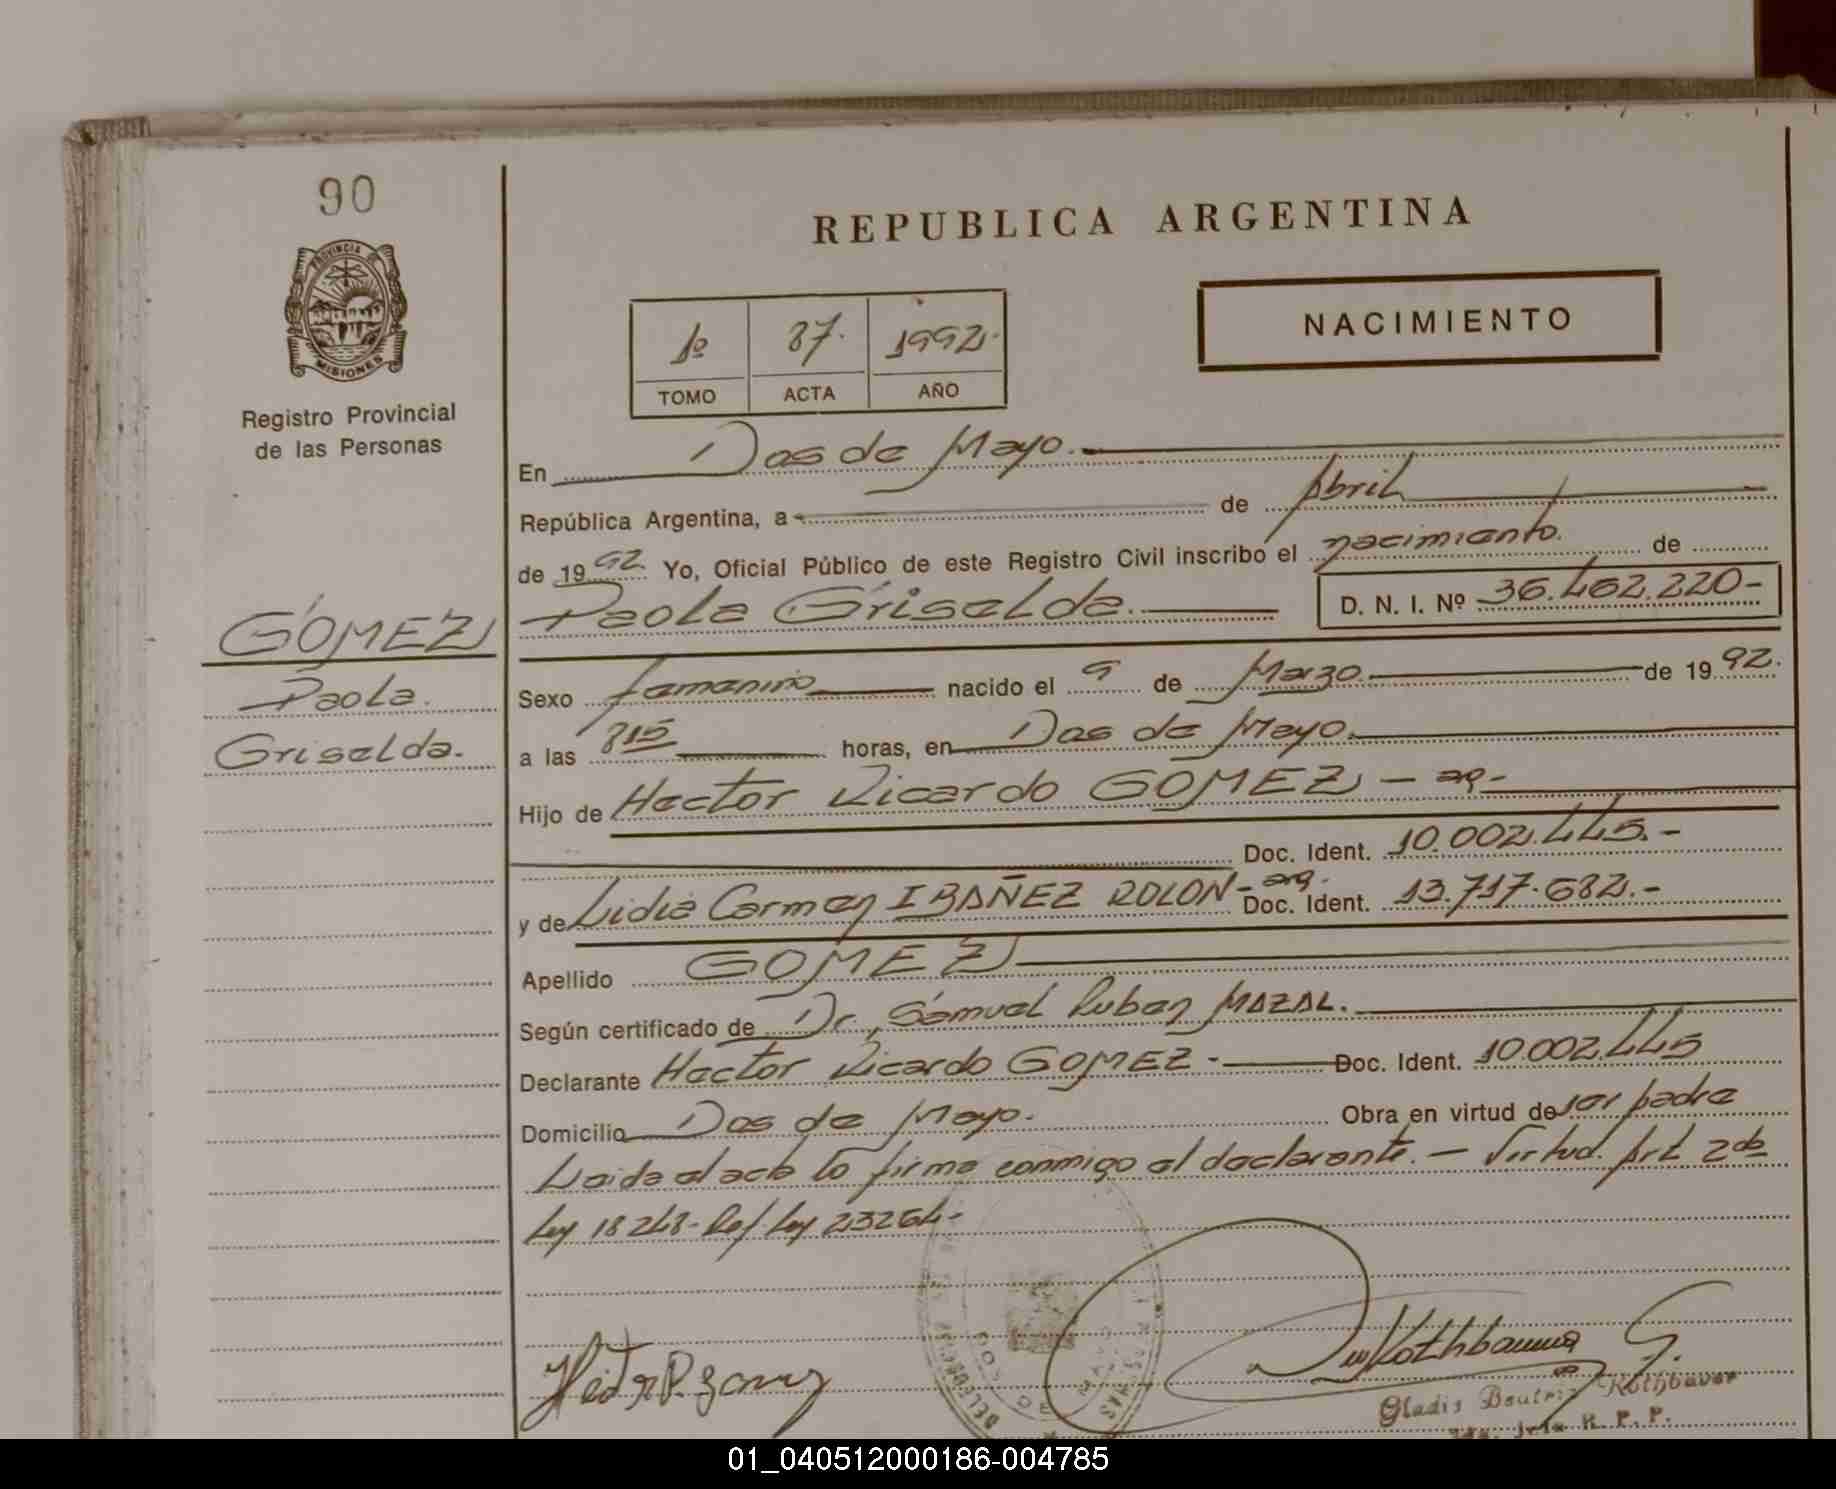 90
PROVINCIA DE
MISIONES
Registro Provincial
de las Personas
REPUBLICA ARGENTINA
NACIMIENTO
1º 87. 1992.
TOMO ACTA AÑO
En Dos de Mayo.
República Argentina, a de Abril
de 1992. Yo, Oficial Público de este Registro Civil inscribo el nacimiento. de
Paola Griselda. D. N. I. Nº 36.462.220-
GOMEZ
Paola.
Griselda.
Sexo femenino nacido el 9 de Marzo. de 1992.
a las 815 horas, en Dos de Mayo.
Hijo de Hector Ricardo GOMEZ - ag-
Doc. Ident. 10.002.445.-
y de Lidia Carmen IBAÑEZ ROLON - arg. Doc. Ident. 13.717.682.-
Apellido GOMEZ
Según certificado de Dr. Samuel Ruben MAZAL.
Declarante Hector Ricardo GOMEZ - Doc. Ident. 10.002.445
Domicilio Dos de Mayo. Obra en virtud de ser padre
Leida el acta la firma conmigo el declarante. - Virtud. Art 2da
Ley 18248- Ref. Ley 23264-
Gladis Beatriz Rothbauer
R. P. P.
01_040512000186-004785